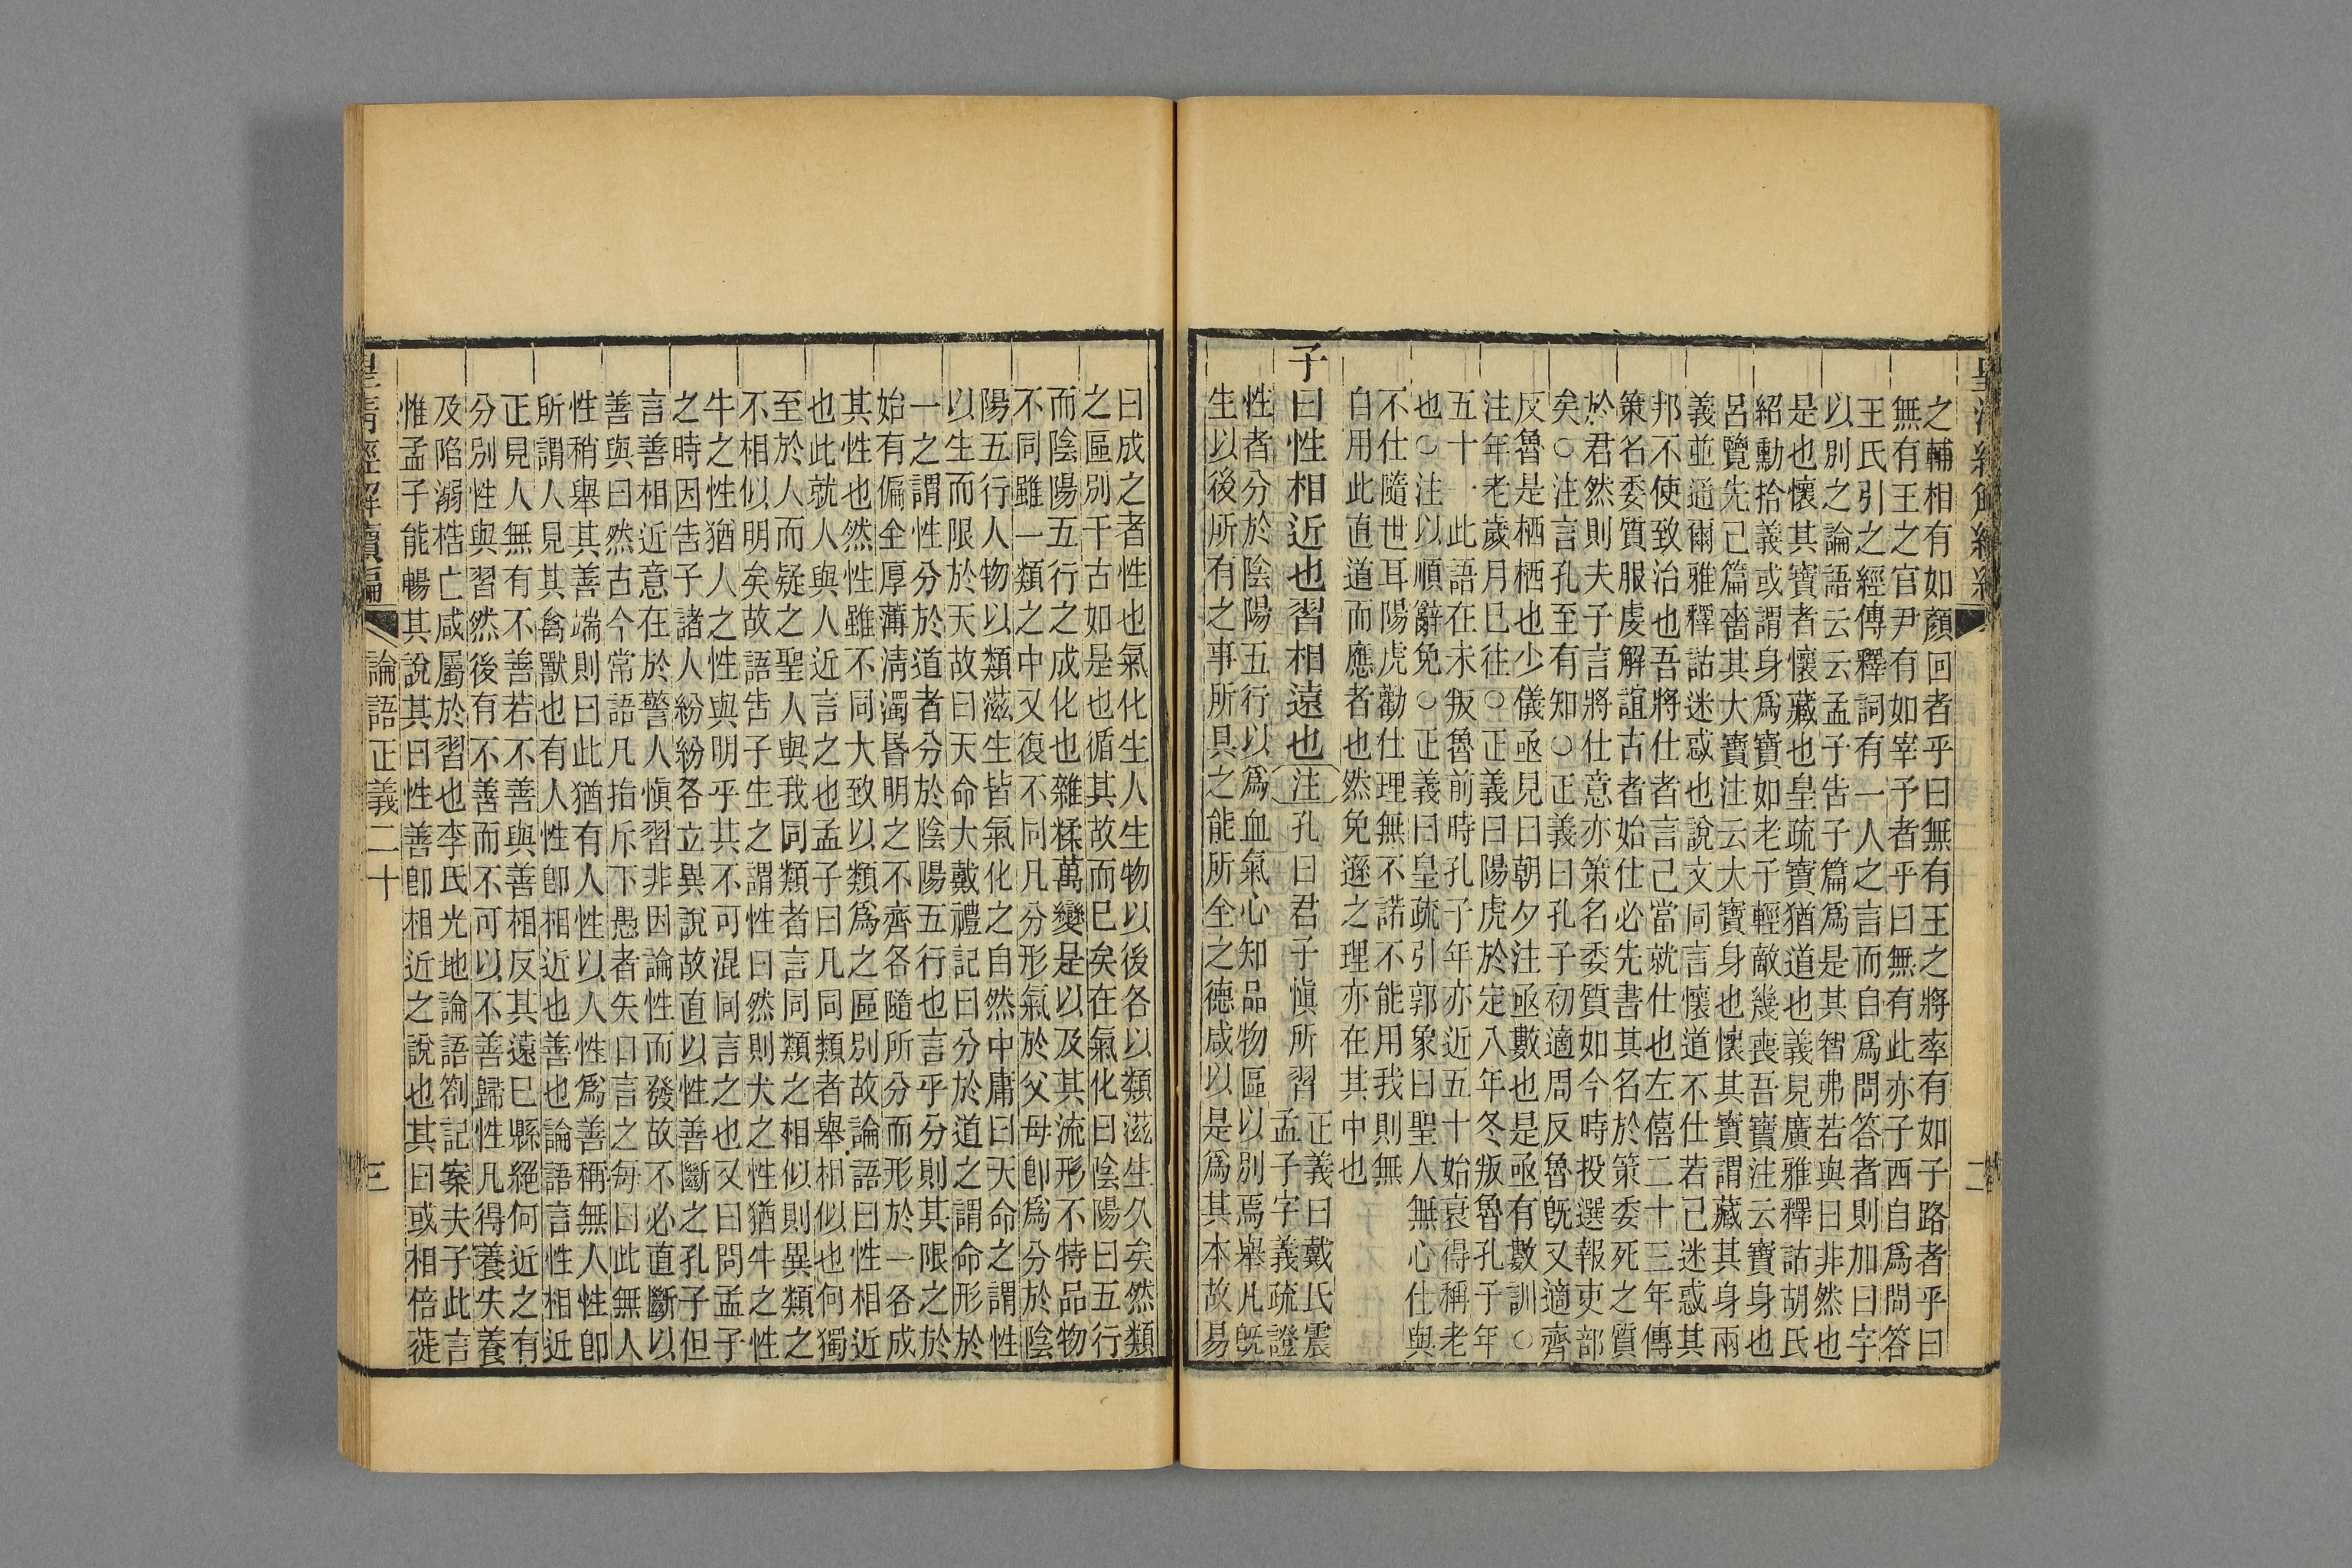 之輔相有如顏回者乎曰無有王之將率有如子路者乎曰
無有王之官尹有如宰予者乎曰無有此亦子西自爲問答
王氏引之經傳釋詞有一人之言而自爲問答者則加曰字
以別之論語云云孟子告子篇爲是其智弗若與曰非然也
是也懷其寶者懷藏也皇疏寶猶道也義見廣雅釋詁胡氏
紹勳拾義或謂身爲寶如老子輕敵幾喪吾寶注云寶身也
呂覽先己篇嗇其大寶注云大寶身也懷其寶謂藏其身兩
義並通爾雅釋詁迷惑也說文同言懷道不仕若己迷惑其
邦不使致治也吾將仕者言己當就仕也左僖二十三年傳
策名委質服虔解誼古者始仕必先書其名於策委死之質
於君然則夫子言將仕意亦策名委質如今時投選報吏部
矣○注言孔至有知○正義曰孔子初適周反魯旣又適齊
反魯是栖栖也少儀亟見曰朝夕注亟數也是亟有數訓○
注年老歲月已往○正義曰陽虎於定八年冬叛魯孔子年
五十一此語在未叛魯前時孔子年亦近五十始衰得稱老
也○注以順辭免○正義曰皇疏引郭象曰聖人無心仕與
不仕隨世耳陽虎勸仕理無不諾不能用我則無
自用此直道而應者也然免遜之理亦在其中也
子曰性相近也習相遠也注孔曰君子愼所習
正義曰戴氏震
孟子字義疏證
性者分於陰陽五行以爲血氣心知品物區以別焉舉凡旣
生以後所有之事所具之能所全之德咸以是爲其本故易
曰成之者性也氣化生人生物以後各以類滋生久矣然類
之區別千古如是也循其故而已矣在氣化曰陰陽曰五行
而陰陽五行之成化也雜糅萬變是以及其流形不特品物
不同雖一類之中又復不同凡分形氣於父母卽爲分於陰
陽五行人物以類滋生皆氣化之自然中庸曰天命之謂性
以生而限於天故曰天命大戴禮記曰分於道之謂命形於
一之謂性分於道者分於陰陽五行也言乎分則其限之於
始有偏全厚薄淸濁昏明之不齊各隨所分而形於一各成
其性也然性雖不同大致以類爲之區別故論語曰性相近
也此就人與人近言之也孟子曰凡同類者舉相似也何獨
至於人而疑之聖人與我同類者言同類之相似則異類之
不相似明矣故語告子生之謂性曰然則犬之性猶牛之性
牛之性猶人之性與明乎其不可混同言之也又曰問孟子
之時因告子諸人紛紛各立異說故直以性善斷之孔子但
言善相近意在於警人愼習非因論性而發故不必直斷以
善與曰然古今常語凡指斥下愚者矢口言之每曰此無人
性稍舉其善端則曰此猶有人性以人性爲善稱無人性卽
所謂人見其禽獸也有人性卽相近也善也論語言性相近
正見人無有不善若不善與善相反其遠已縣絕何近之有
分別性與習然後有不善而不可以不善歸性凡得養失養
及陷溺梏亡咸屬於習也李氏光地論語劄記案夫子此言
惟孟子能暢其說其曰性善卽相近之說也其曰或相倍蓰
皇淸經解續編
論語正義二十
三